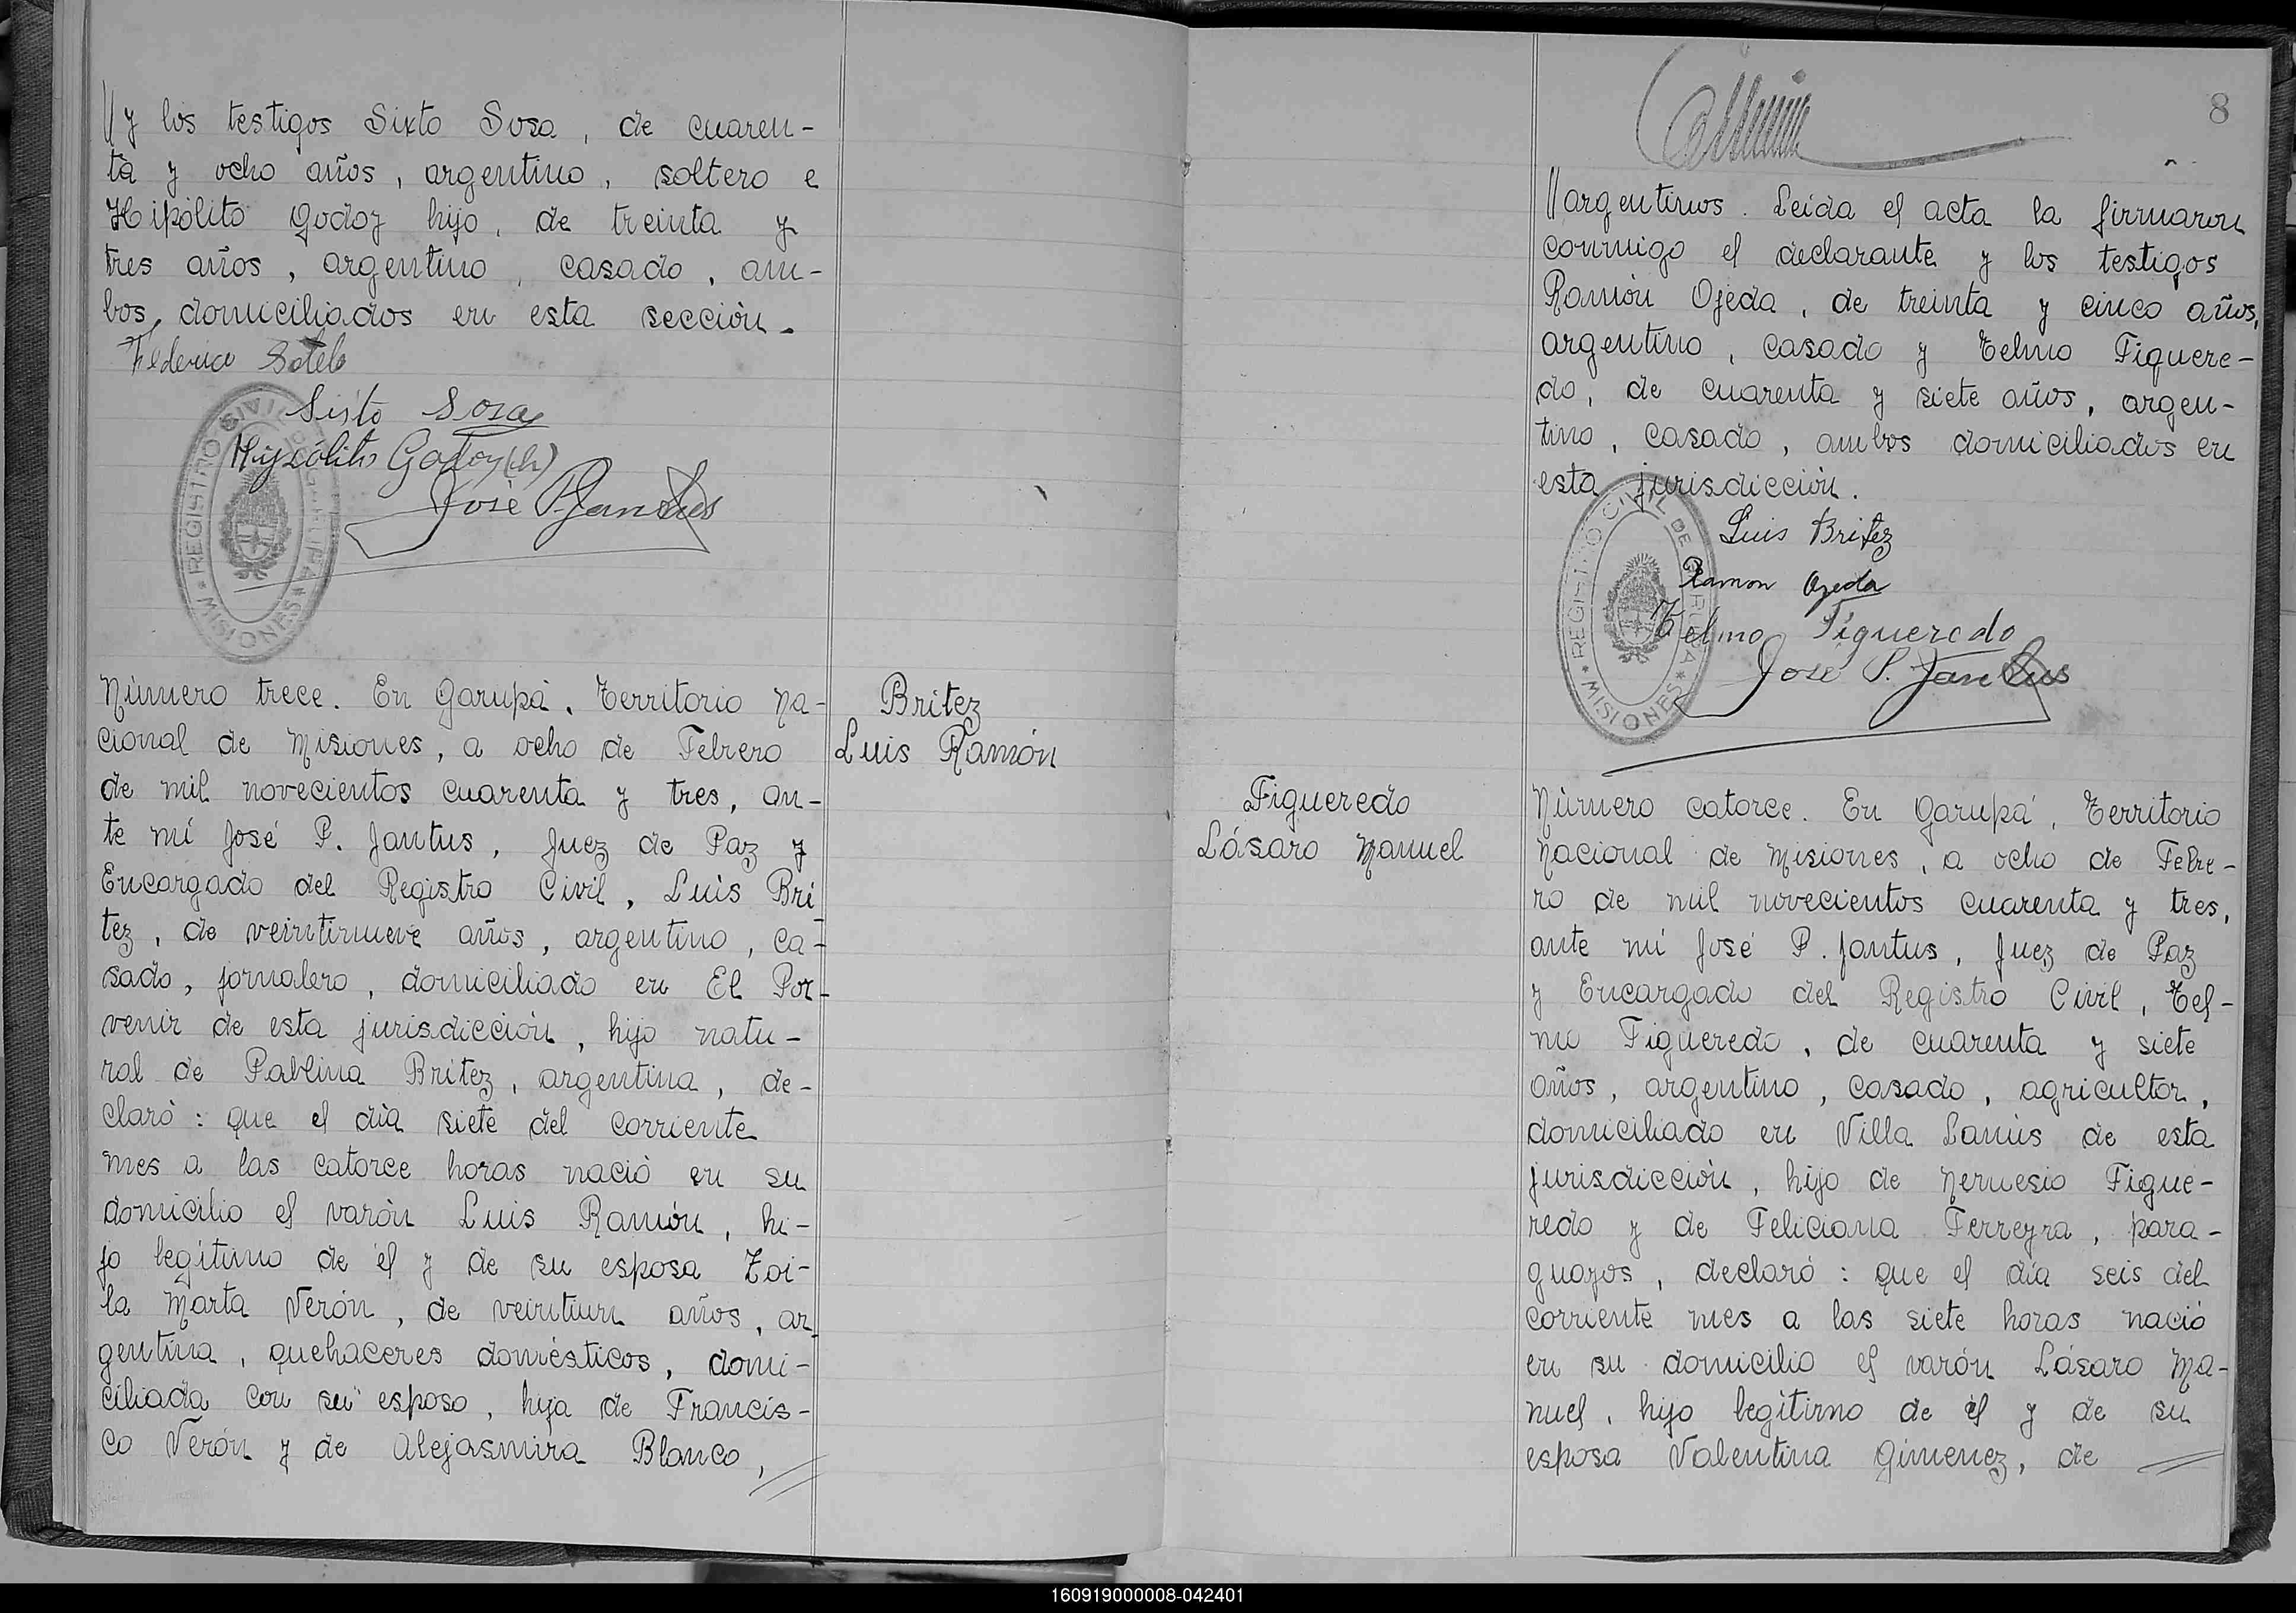 // y los testigos Sixto Sosa, de cuaren-
ta y ocho años, argentino, soltero e
Hipólito Godoy hijo, de treinta y
tres años, argentino, casado, am-
bos domiciliados en esta sección.
Federico Sotelo
Sisto Sosa
Hipólito Godoy (h)
José P. Jantus
REGISTRO CIVIL DE GARUPA
* MISIONES *
Número trece. En Garupá, Territorio Na-
cional de Misiones, a ocho de Febrero
de mil novecientos cuarenta y tres, an-
te mí José P. Jantus, Juez de Paz y
Encargado del Registro Civil, Luis Bri-
tez, de veintinueve años, argentino, ca-
sado, jornalero, domiciliado en El Por-
venir de esta jurisdicción, hijo natu-
ral de Pablina Britez, argentina, de-
claró: que el día siete del corriente
mes a las catorce horas nació en su
domicilio el varón Luis Ramón, hi-
jo legítimo de él y de su esposa Zoi-
la Marta Verón, de veintiun años, ar-
gentina, quehaceres domésticos, domi-
ciliada con su esposo, hija de Francis-
co Verón y de Alejasmira Blanco, //
Britez
Luis Ramón
8
// argentinos. Leída el acta la firmaron
conmigo el declarante y los testigos
Ramón Ojeda, de treinta y cinco años,
argentino, casado y Telmo Figuere-
do, de cuarenta y siete años, argen-
tino, casado, ambos domiciliados en
esta jurisdicción.
Luis Britez
Ramon Ojeda
Telmo Figueredo
José P. Jantus
REGISTRO CIVIL DE GARUPA
* MISIONES *
Figueredo
Lásaro Manuel
Número catorce. En Garupá, Territorio
Nacional de Misiones, a ocho de Febre-
ro de mil novecientos cuarenta y tres,
ante mí José P. Jantus, Juez de Paz
y Encargado del Registro Civil, Tel-
mo Figueredo, de cuarenta y siete
años, argentino, casado, agricultor,
domiciliado en Villa Lanús de esta
jurisdicción, hijo de Nemesio Figue-
redo y de Feliciana Ferreyra, para-
guayos, declaró: que el día seis del
corriente mes a las siete horas nació
en su domicilio el varón Lásaro Ma-
nuel, hijo legítimo de él y de su
esposa Valentina Gimenez, de //
160919000008-042401